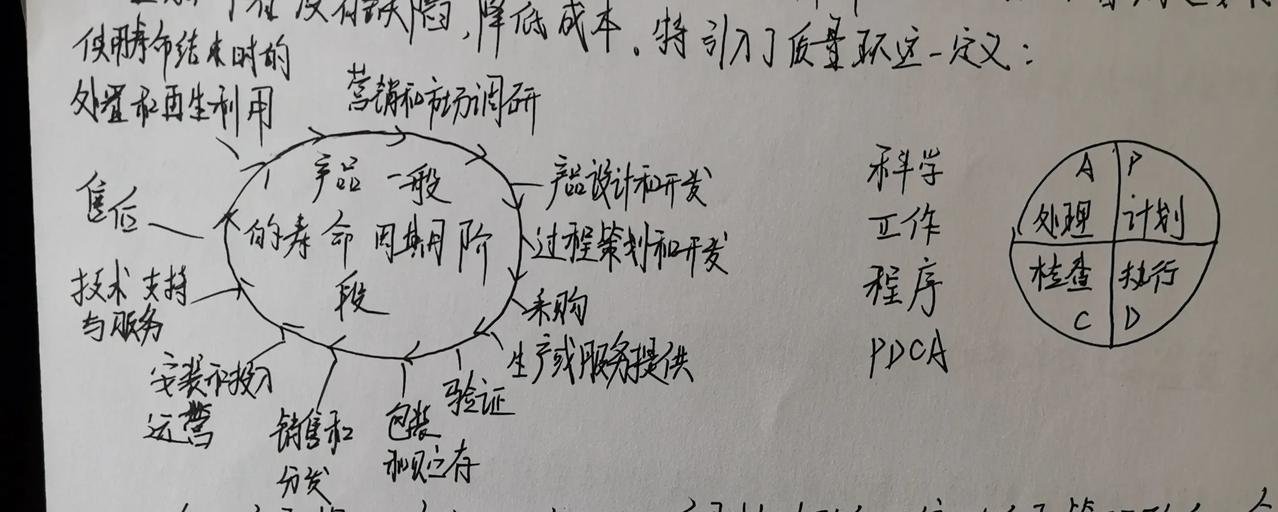 降低成本。特引入了质量环这一定义：
使用寿命结束时的
处置和再生利用
营销和市场调研
产品设计和开发
过程策划和开发
采购
生产或服务提供
验证
包装
和贮存
销售和
分发
安装和投入
运营
技术支持
与服务
售后
产品一般
的寿命周期阶
段
科学
工作
程序
PDCA
A P
处理 计划
检查 执行
C D